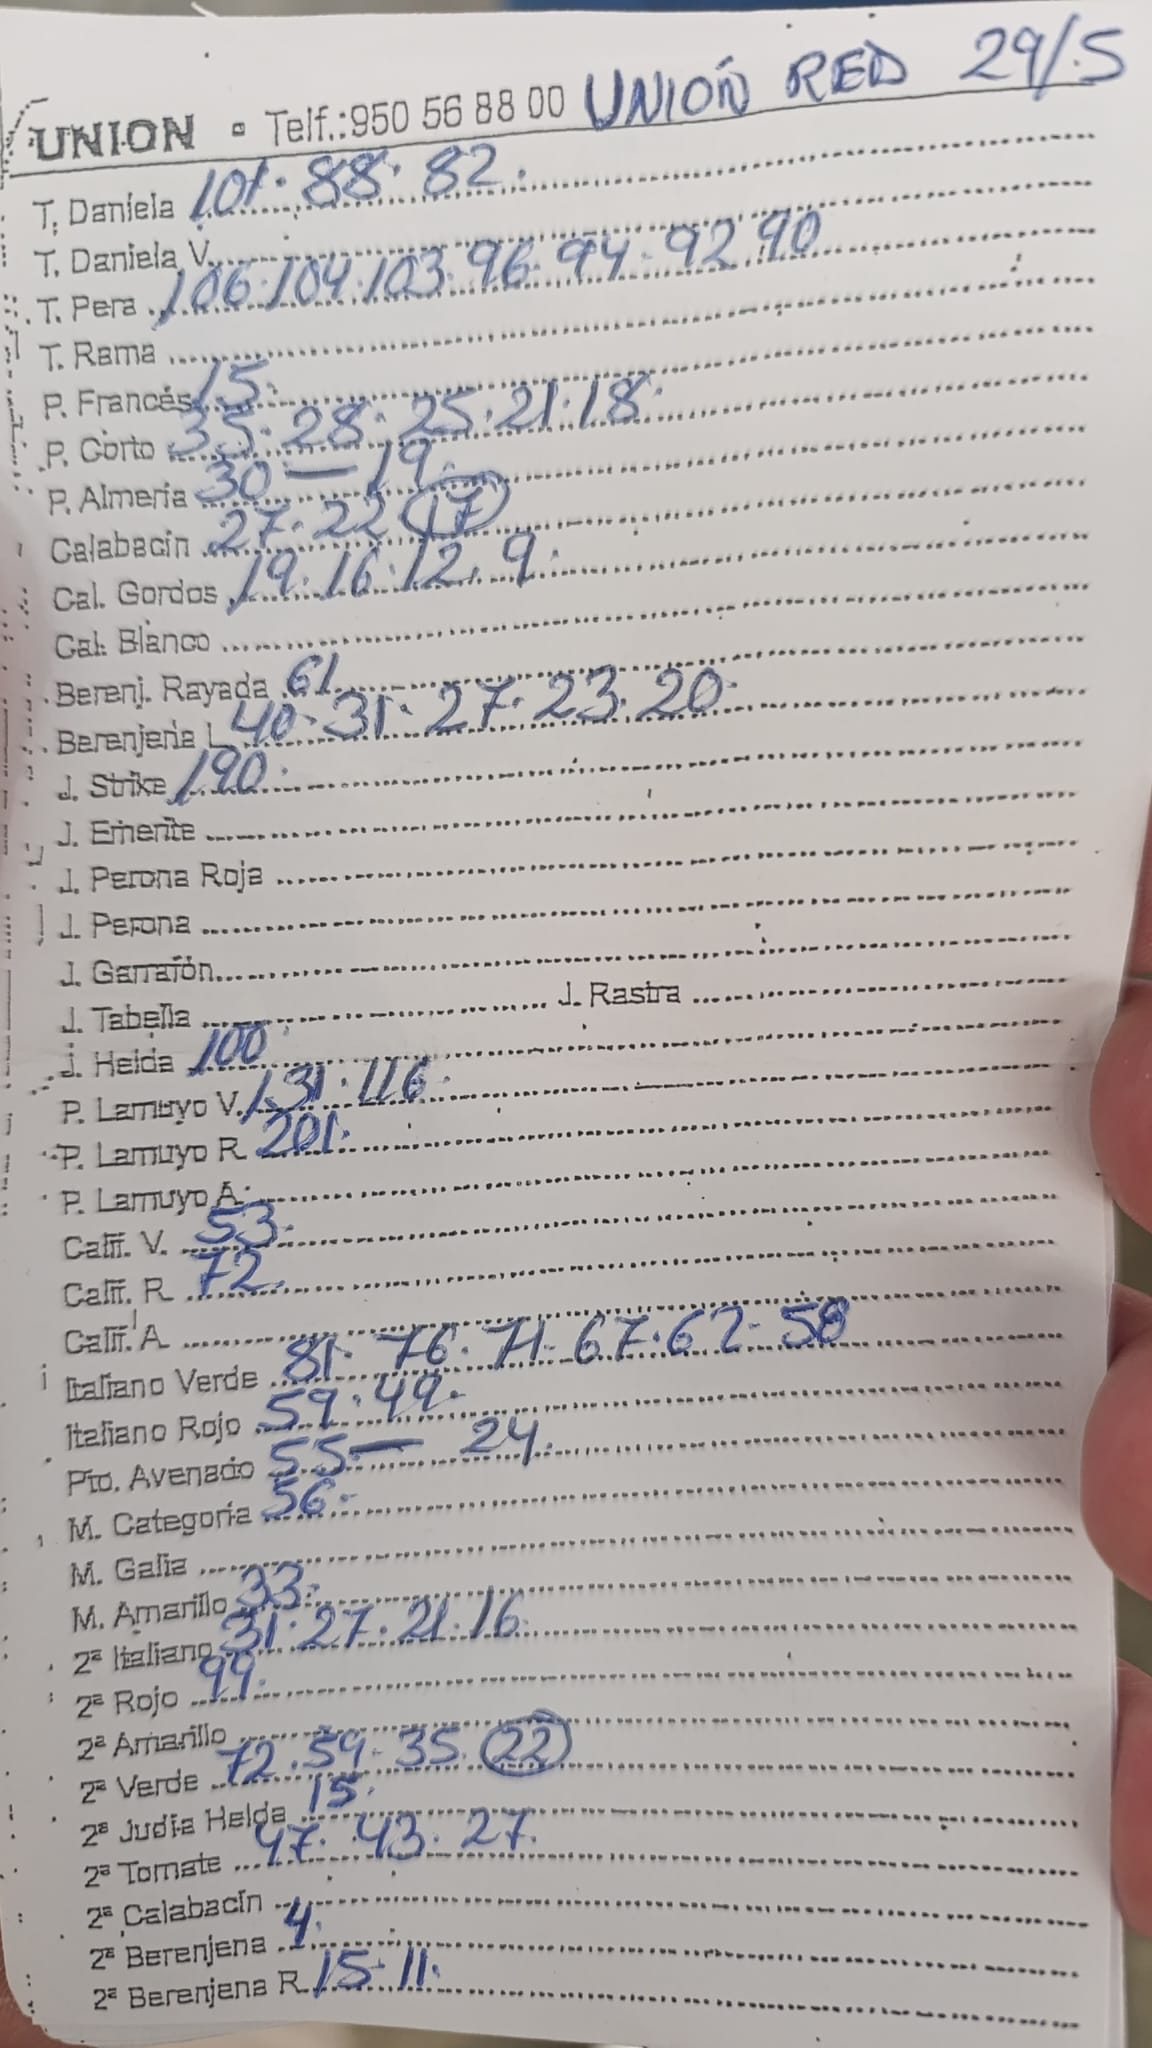 UNION • Telf.:950 56 88 00 UNIÓN RED 29/5
T. Daniela 101. 88. 82.
T. Daniela V.
T. Pera 106. 104. 103. 96. 94. 92 90
T. Rama
P. Francés 15.
P. Corto 35. 28. 25. 21. 18.
P. Almería 30 — 19.
Calabacín 27. 22 17
Cal. Gordos 19. 16. 12. 9.
Cal. Blanco
Berenj. Rayada 61
Berenjena L 40. 31. 27. 23. 20.
J. Strike 190.
J. Emerite
J. Perona Roja
J. Perona
J. Garrafón
J. Tabella J. Rastra
J. Helda 100
P. Lamuyo V. 131. 116.
P. Lamuyo R 201.
P. Lamuyo A.
Calif. V. 53.
Calif. R 72.
Calif. A
Italiano Verde 81. 76. 71. 67. 62. 58
Italiano Rojo 59. 49.
Pto. Avenado 55 — 24.
M. Categoría 56.
M. Galia
M. Amarillo 33.
2ª Italiano 31. 27. 21. 16.
2ª Rojo 99.
2ª Amarillo
2ª Verde 72. 59. 35. 22
2ª Judía Helda 15.
2ª Tomate 47. 43. 27.
2ª Calabacín
2ª Berenjena 4.
2ª Berenjena R 15. 11.